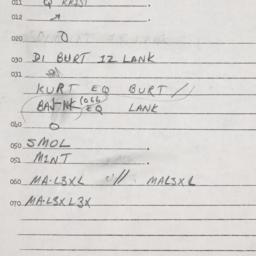 011 Q KRIST .
012 .
020
030 DI BURT IZ LANK
031
KURT EQ BURT //
(BAJ-NK (OLG) EQ LANK
040
050 SMOL .
051 MINT .
060 MA-L3XL // MAL3XL
070 MA-L3XL3X